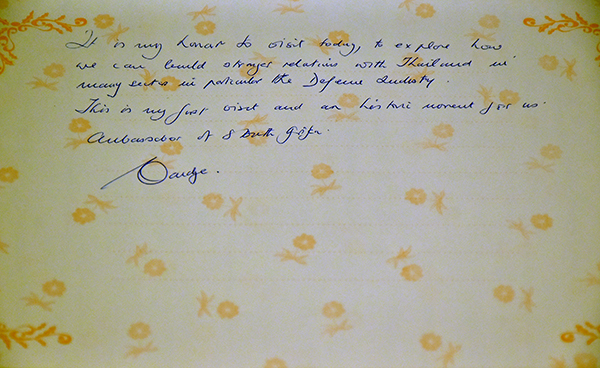 It is my honor to visit today, to explore how
we can build stronger relations with Thailand in
many sectors in particular the Defence Industry.
This is my first visit and an historic moment for us.
Ambassador of South Africa.